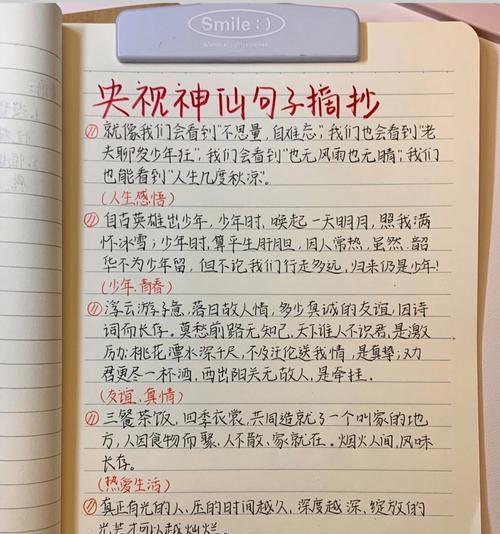 Smile:)
央视神仙句子摘抄
就像我们会看到"不思量，自难忘"；我们也会看到"老
夫聊发少年狂"，我们会看到"也无风雨也无晴"；我们
也能看到"人生几度秋凉"。
(人生感悟)
自古英雄出少年，少年时，唤起一天明月，照我满
怀冰雪；少年时，算平生肝胆，因人常热，虽然，韶
华不为少年留，但不论我们行走多远，归来仍是少年!
(少年 青春)
浮云游子意，落日故人情，多少真诚的友谊，因诗
词而长存。莫愁前路无知己，天下谁人不识君，是激
厉办桃花潭水深千尺，不及汪伦送我情，是真挚；劝
君更尽一杯酒，西出阳关无故人，是牵挂。
(友谊、真情)
三餐茶饭，四季衣裳，共同造就了一个叫家的地
方，人因食物而聚、人不散、家就在。烟火人间，风味
长存。
(热爱生活)
真正有光的人，压的时间越久，深度越深，绽放的
光芒才可以越灿烂。